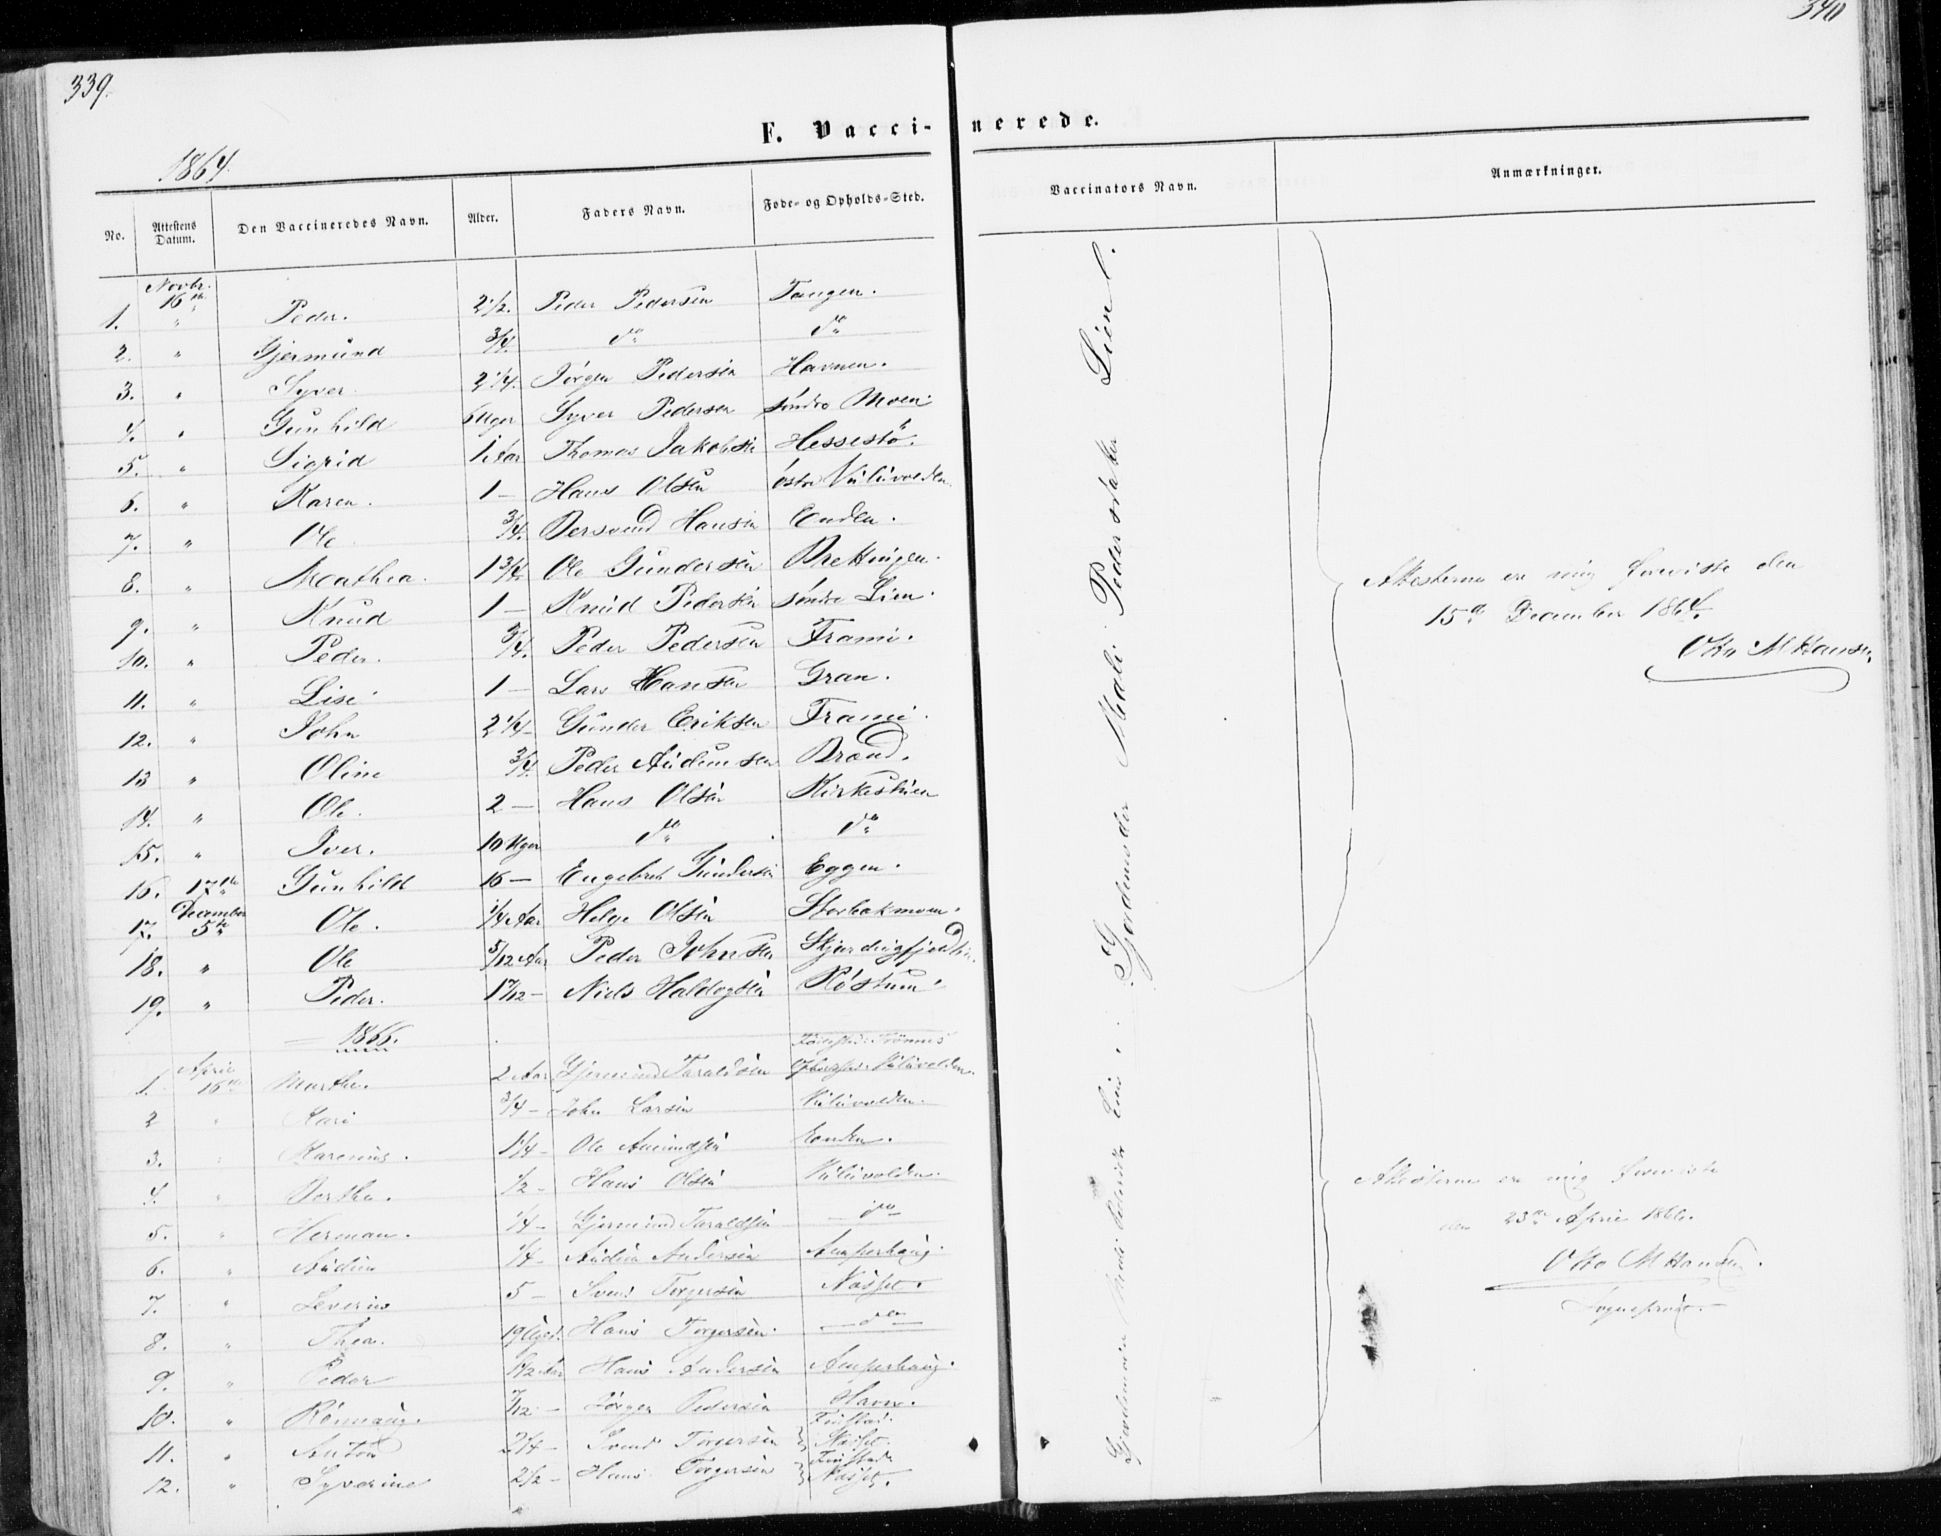 339.
340
F. Vacci-nerede.
1864.
No. Attestens Datum. Den Vaccineredes Navn. Alder. Faders Navn. Føde- og Opholds-Sted. Vaccinators Navn. Anmærkninger.
Novbr.
1. 16de Peder. 2 1/2. Peder Pedersen Tangen.
2. " Gjermund 3/4. do do
3. " Syver. 2 1/4. Jørgen Pedersen Havnen.
4. " Gunhild 6 Uger Syver Pedersen søndre Moen.
5. " Sigrid 1 Aar Thomas Jakobsen Hessestø.
6. " Karen. 1 — Hans Olsen østre
7. " Ole 3/4. Bersvend Hansen Enden.
8. " Mathea. 1 3/4. Ole Gundersen Brettingen.
9. " Knud 1 — Knud Pedersen søndre Lien.
10. " Peder. 3/4. Peder Pedersen Frami.
11. " Lise 1 — Lars Hansen Gran.
12. " John 2 1/4 — Gunder Eriksen Frami.
13 " Oline 3/4. Peder Audunsen Brænd.
14. " Ole. 2 — Hans Olsen Kirkestuen
15. " Iver. 10 Uger do do
16. 17de Gunhild 16 — Engebret Gundersen Eggen.
December
17. 5te Ole. 1/4 Aar Helge Olsen Storbækmoen.
18. " Ole 5/12 Aar Peder Johnsen
19. " Peder. 1 7/12 — Niels Haldogsen Røstum.
1866.
April
1. 16de Marthe. 2 Aar Gjermund Taraldsen
2 " Kari 3/4 — John Larsen
3. " Karenus. 1 1/4 — Ole Amundsen Enden.
4. " Berthe. 1/2 — Hans Olsen
5. " Herman. 1/4 — Gjermund Taraldsen do
6. " Audun 1/4 — Audun Andersen Amperhaug.
7. " Severin 5 — Svend Torgersen Næsset.
8. " Thea. 19 Uger. Hans Torgersen. do
9. " Peder Hans Andersen Amperhaug.
10. " Rønnaug. 7/12 — Jørgen Pedersen Havn.
11. " Anton 2 1/4 — Svend Torgersen Finstad. Næsset.
12. " Syverine 2 1/2 — Hans Torgersen Finstad Næsset.
Gjordemoder Mali Pedersdatter Lien.
Gjordemoder Mali Pedersdtr Lien.
Attesterne ere mig foreviste den
15de December 1864.
Otto M Hansen
Attesterne ere mig foreviste
den 23de April 1866.
Otto M Hansen.
Sognepræst.